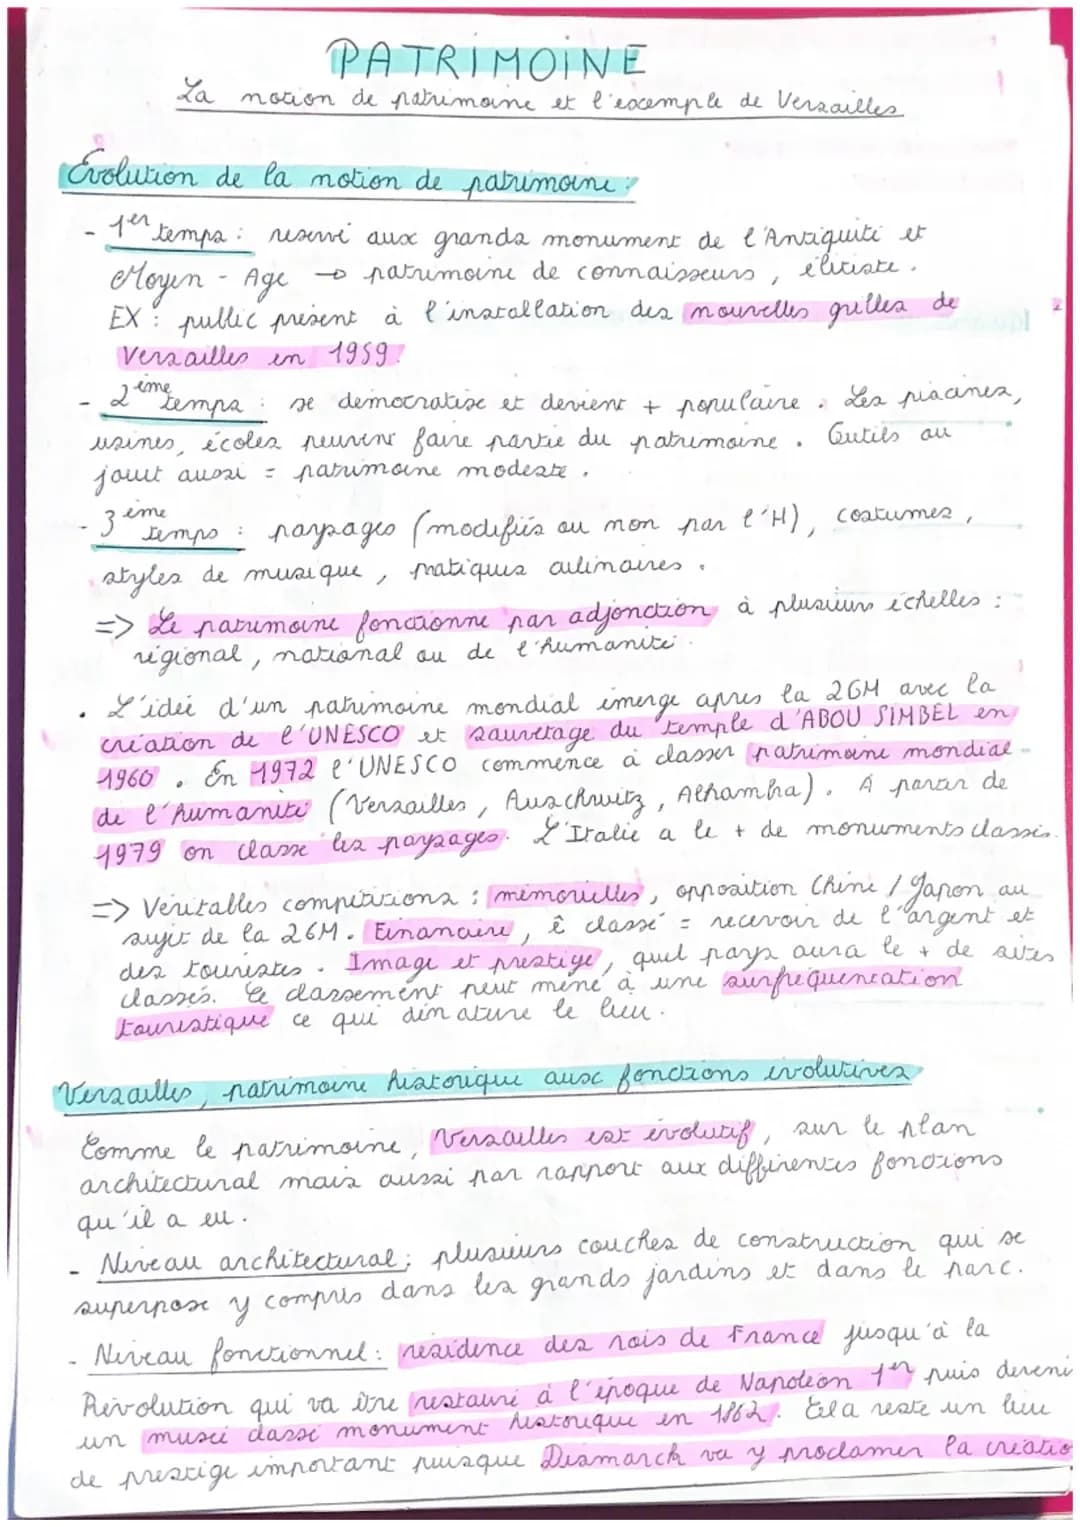 PATRIMOINE
La notion de patrimoine et l'exemple de Versailles
Evolution de la notion de patrimoine :
- 1er temps : réservé aux grands monument de l'Antiquité et
Moyen - Age → patrimoine de connaisseurs, élitiste.
EX : public présent à l'installation des nouvelles grilles de
Versailles en 1959.
- 2ème temps : se démocratise et devient + populaire. Les piscines,
usines, écoles peuvent faire partie du patrimoine. Outils au
jouet aussi = patrimoine modeste.
- 3ème temps : paysages (modifiés ou non par l'H), costumes,
styles de musique, pratiques culinaires.
=> Le patrimoine fonctionne par adjonction à plusieurs échelles :
régional, national ou de l'humanité.
• L'idée d'un patrimoine mondial émerge après la 2GM avec la
création de l'UNESCO et sauvetage du temple d'ABOU SIMBEL en
1960. En 1972 l'UNESCO commence à classer patrimoine mondial
de l'humanité (Versailles, Auschwitz, Alhambra). A partir de
1979 on classe les paysages. L'Italie a le + de monuments classés.
=> Véritables compétitions : mémorielles, opposition Chine / Japon au
sujet de la 2GM. Financière, ê classé = recevoir de l'argent et
des touristes. Image et prestige, quel pays aura le + de sites
classés. Ce classement peut mené à une surfréquentation
touristique ce qui dénature le lieu.
Versailles, patrimoine historique aux fonctions évolutives
Comme le patrimoine, Versailles est évolutif, sur le plan
architectural mais aussi par rapport aux différentes fonctions
qu'il a eu.
- Niveau architectural : plusieurs couches de construction qui se
superpose y compris dans les grands jardins et dans le parc.
- Niveau fonctionnel : résidence des rois de France jusqu'à la
Révolution qui va être restauré à l'époque de Napoléon 1er puis deveni
un musée classé monument historique en 1862. Cela reste un lieu
de prestige important puisque Bismarck va y proclamer la créatio